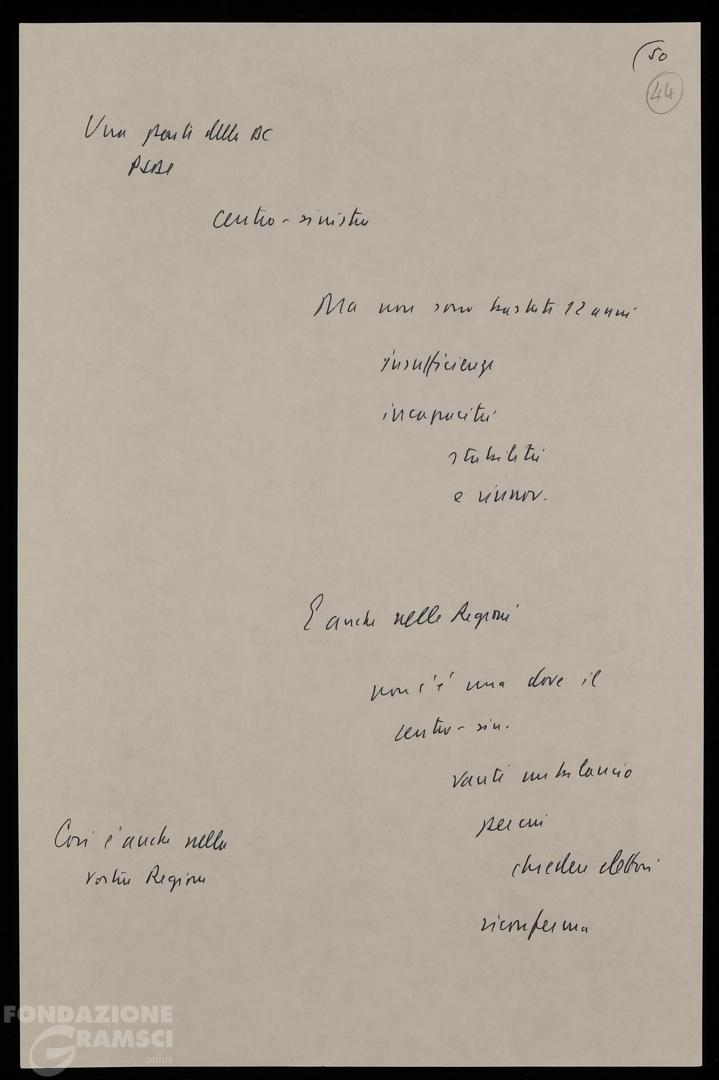 50
44
Una parte della DC
centro-sinistra
Ma non sono bastati 12 anni
insufficienze
incapacità
stabilità
e rinnov.
E anche nelle Regioni
non c'è una dove il
centro-sin.
vanti un bilancio
per cui
chiedere elettori
riconferma
Così è anche nella
vostra Regione
FONDAZIONE
GRAMSCI
onlus